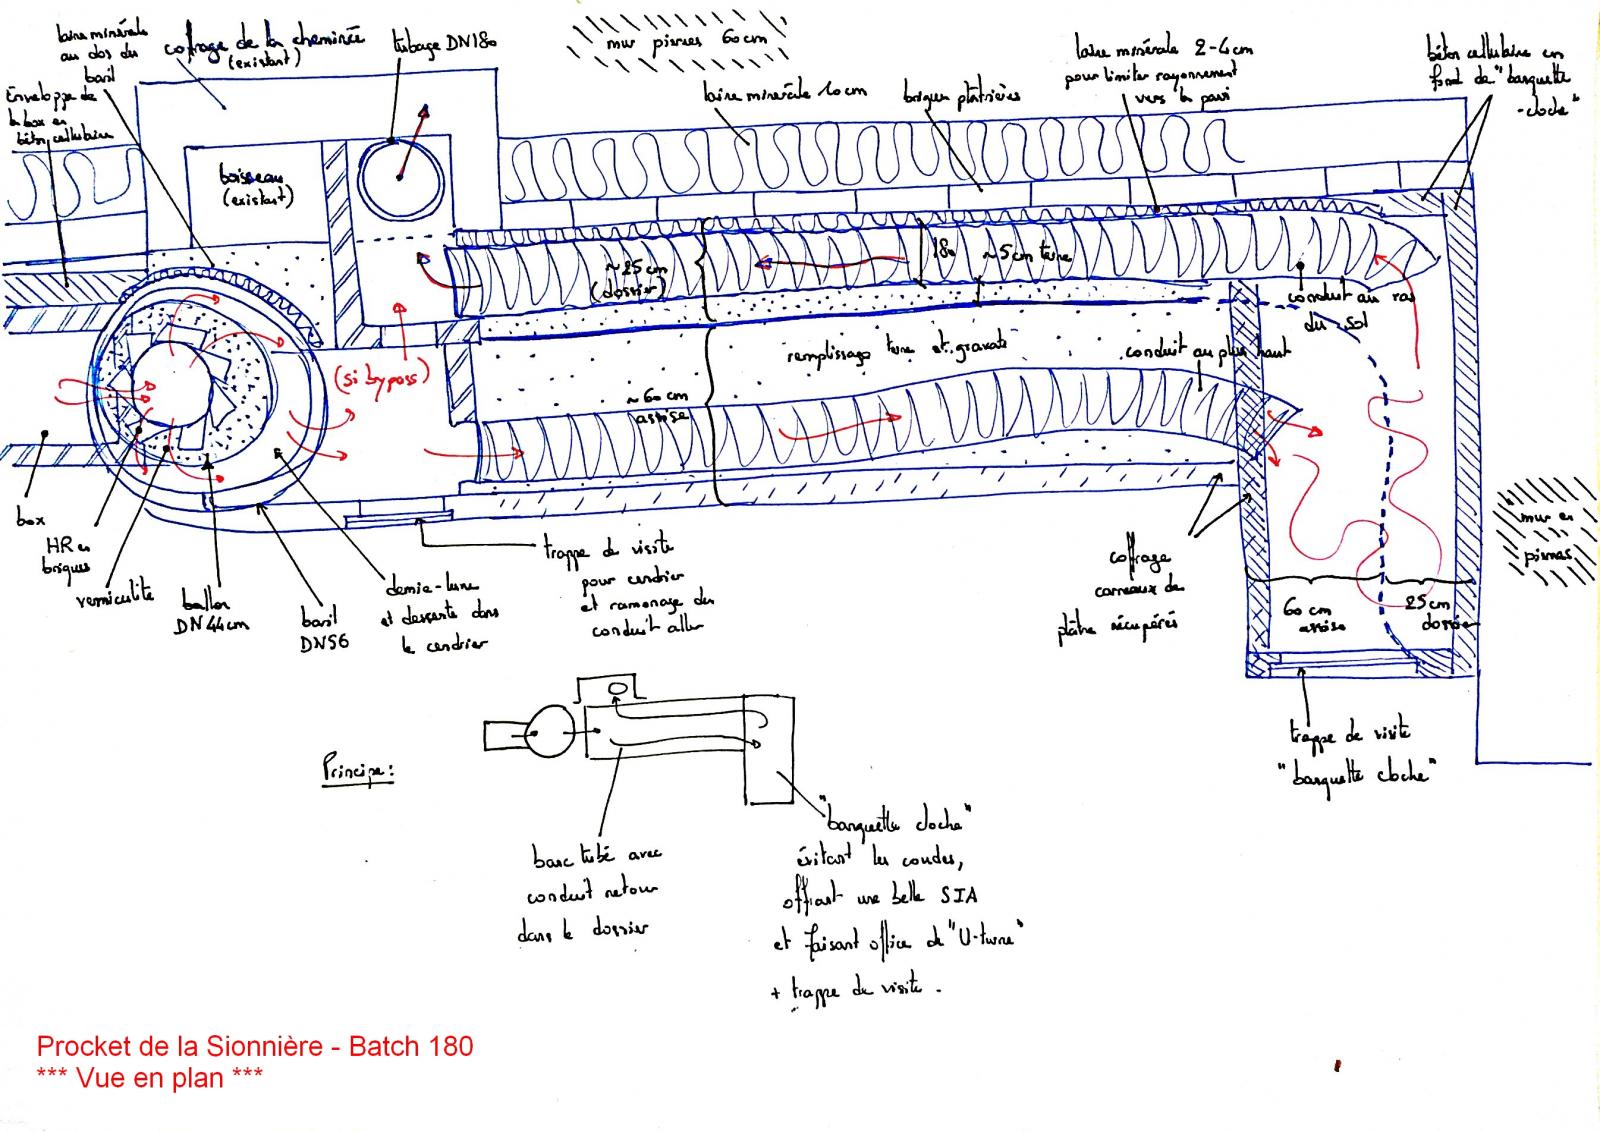 laine minérale
au dos du
baril
cofrage de la cheminée
(existant)
tubage DN180
mur pierres 60cm
laine minérale 2-4cm
pour limiter rayonnement
vers la paroi
béton cellulaire en
fond de "banquette
-cloche"
Enveloppe de
la box en
béton cellulaire
laine minérale 10cm
briques plâtrières
boisseau
(existant)
~25cm
(dossier)
180
~5cm terre
conduit au ras
du sol
remplissage terre et gravats
conduit au plus haut
(si bypass)
~60cm
assise
box
HR en
briques
vermiculite
ballon
DN44cm
baril
DN56
demie-lune
et descente dans
le cendrier
trappe de visite
pour cendrier
et ramonage du
conduit aller
coffrage
carreaux de
plâtre récupérés
mur en
pierres
60cm
assise
25cm
dossier
trappe de visite
"banquette cloche"
Principe:
banc tubé avec
conduit retour
dans le dossier
"banquette cloche"
évitant les coudes,
offrant une belle SIA
et faisant office de "U-turn"
+ trappe de visite.
Procket de la Sionnière - Batch 180
*** Vue en plan ***